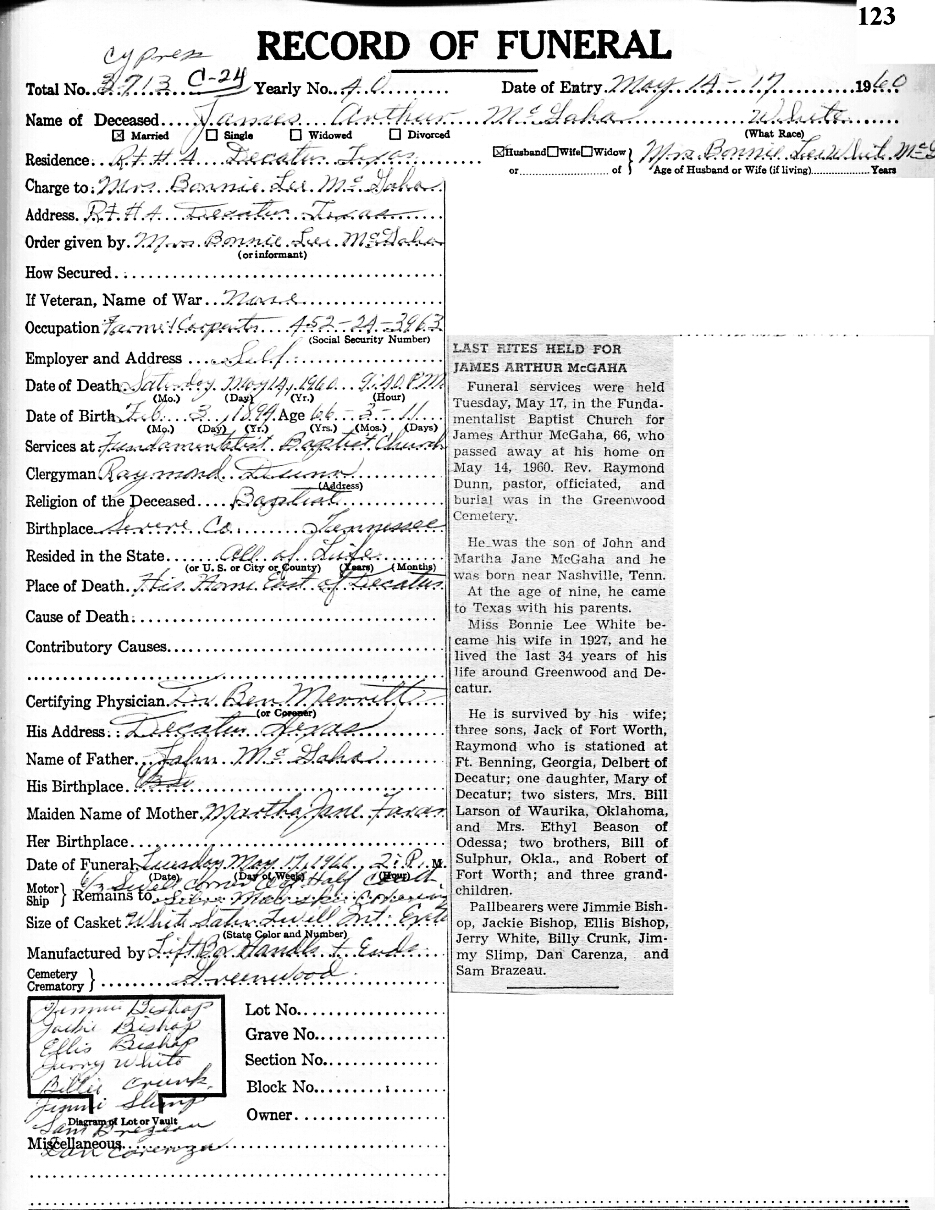 123
RECORD OF FUNERAL
Cypress
Total No. 3713 C-24 Yearly No. 40 Date of Entry May 14-17 1960
Name of Deceased James Arthur McGaha White
☒ Married ☐ Single ☐ Widowed ☐ Divorced (What Race)
Residence Rt # 4 Decatur Texas ☒Husband☐Wife☐Widow } Mrs. Bonnie Lee White McG
or of } Age of Husband or Wife (if living) Years
Charge to: Mrs. Bonnie Lee McGaha
Address. Rt # 4 Decatur Texas
Order given by Mrs. Bonnie Lee McGaha
(or informant)
How Secured
If Veteran, Name of War None
Occupation 452-24-3963
(Social Security Number)
Employer and Address Self
Date of Death Saturday May 14, 1960 9:40 P.M.
(Mo.) (Day) (Yr.) (Hour)
Date of Birth Feb. 3 1894 Age 66-3-11
(Mo.) (Day) (Yr.) (Yrs.) (Mos.) (Days)
Services at Fundamentalist Baptist Church
Clergyman Raymond Dunn
(Address)
Religion of the Deceased Baptist
Birthplace Severe Co. Tennessee
Resided in the State All of Life
(or U. S. or City or County) (Years) (Months)
Place of Death His Home East of Decatur
Cause of Death:
Contributory Causes
Certifying Physician Dr. Ben Merritt
(or Coroner)
His Address: Decatur Texas
Name of Father John McGaha
His Birthplace
Maiden Name of Mother Martha Jane
Her Birthplace
Date of Funeral Tuesday May 17, 1960 2: P. M.
(Date) (Day of Week) (Hour)
Motor
Ship } Remains to
Size of Casket White Satin Twill Int.
(State Color and Number)
Manufactured by Handls + Ends
Cemetery
Crematory } Greenwood
Jimmie Bishop
Jackie Bishop
Ellis Bishop
Jerry White
Billie Crunk
Jimmi Slimp
Sam Brezeau
Dan Carenza
Diagram of Lot or Vault
Lot No.
Grave No.
Section No.
Block No.
Owner
Miscellaneous
LAST RITES HELD FOR
JAMES ARTHUR McGAHA
Funeral services were held
Tuesday, May 17, in the Funda-
mentalist Baptist Church for
James Arthur McGaha, 66, who
passed away at his home on
May 14, 1960. Rev. Raymond
Dunn, pastor, officiated, and
burial was in the Greenwood
Cemetery.
He was the son of John and
Martha Jane McGaha and he
was born near Nashville, Tenn.
At the age of nine, he came
to Texas with his parents.
Miss Bonnie Lee White be-
came his wife in 1927, and he
lived the last 34 years of his
life around Greenwood and De-
catur.
He is survived by his wife;
three sons, Jack of Fort Worth,
Raymond who is stationed at
Ft. Benning, Georgia, Delbert of
Decatur; one daughter, Mary of
Decatur; two sisters, Mrs. Bill
Larson of Waurika, Oklahoma,
and Mrs. Ethyl Beason of
Odessa; two brothers, Bill of
Sulphur, Okla., and Robert of
Fort Worth; and three grand-
children.
Pallbearers were Jimmie Bish-
op, Jackie Bishop, Ellis Bishop,
Jerry White, Billy Crunk, Jim-
my Slimp, Dan Carenza, and
Sam Brazeau.